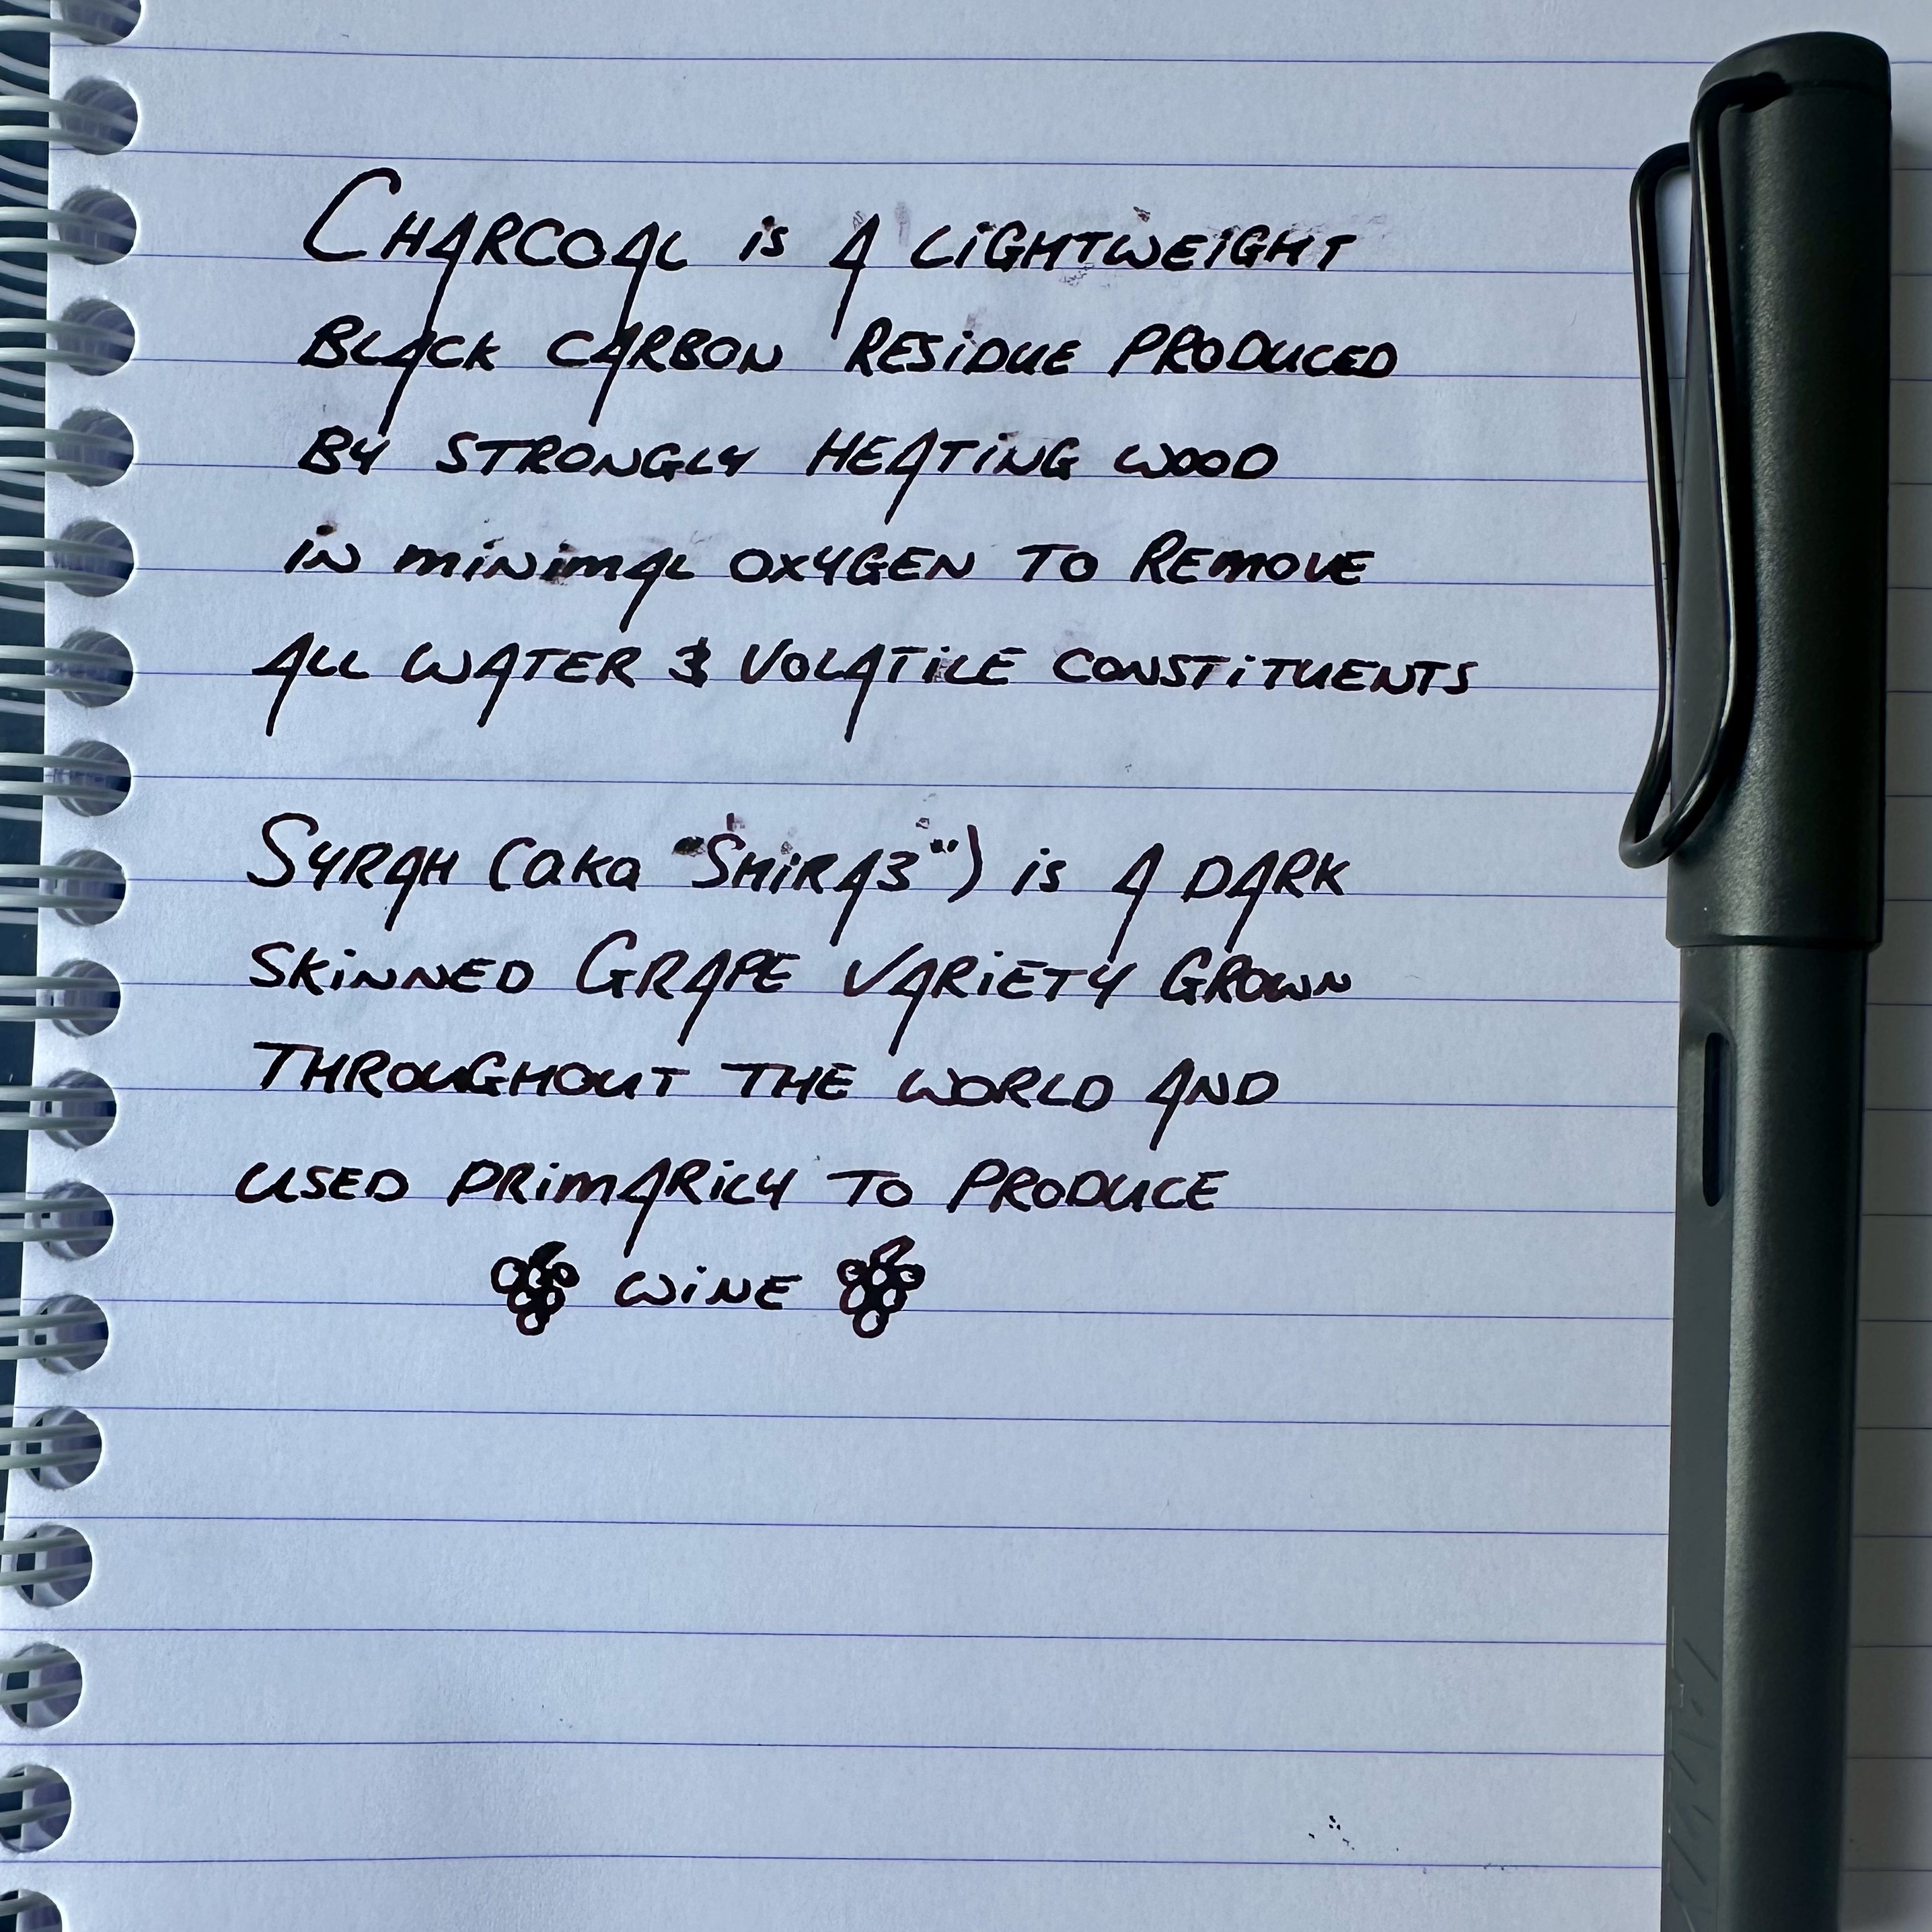 CHARCOAL iS A LiGHTWEiGHT
BLACK CARBON RESiDUE PRODUCED
BY STRONGLY HEATiNG WOOD
iN miNimAL OXYGEN TO REmOVE
ALL WATER & VOLATiLE CONSTiTUENTS
SYRAH (aka "SHiRAZ") iS A DARK
SKiNNED GRAPE VARiETY GROWN
THROUGHOUT THE WORLD AND
USED PRimARiLY TO PRODUCE
WiNE